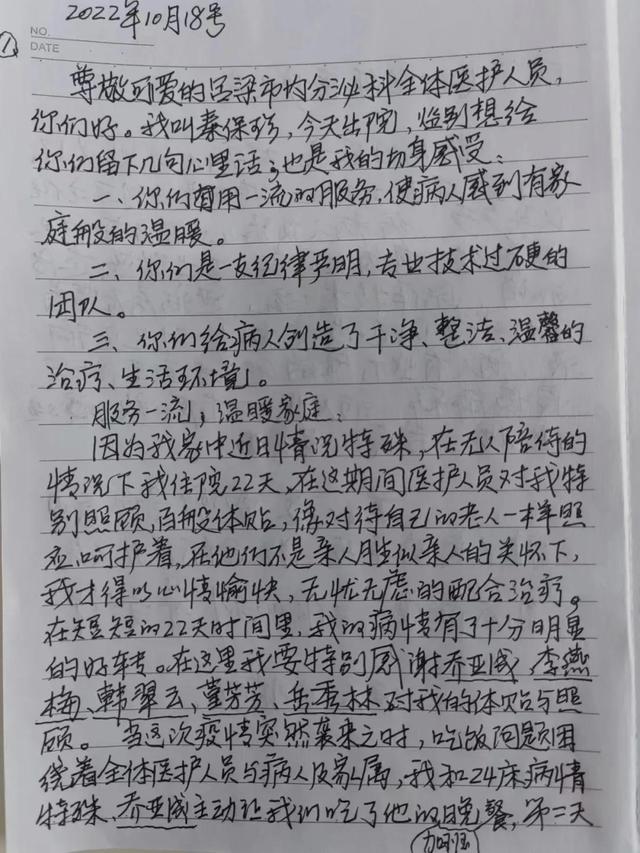 2022年10月18号
NO.
DATE
①
尊敬可爱的吕梁市内分泌科全体医护人员,
你们好。我叫秦保珍,今天出院,临别想给
你们留下几句心里话;也是我的切身感受:
一、你们有用一流的服务,使病人感到有家
庭般的温暖。
二、你们是一支纪律严明,专业技术过硬的
团队。
三、你们给病人创造了干净、整洁、温馨的
治疗、生活环境。
服务一流;温暖家庭:
因为我家中近日情况特殊,在无人陪侍的
情况下我住院22天,在这期间医护人员对我特
别照顾,百般体贴,像对待自己的老人一样照
应呵护着,在他们不是亲人胜似亲人的关怀下,
我才得以心情愉快,无忧无虑的配合治疗。
在短短的22天时间里,我的病情有了十分明显
的好转。在这里我要特别感谢乔亚威,李燕
梅、韩翠云、董芳芳、岳秀林对我的体贴与照
顾。当这次疫情突然袭来之时,吃饭问题困
绕着全体医护人员与病人及家属,我和24床病情
特殊、乔亚威主动让我们吃了他的晚餐,第二天